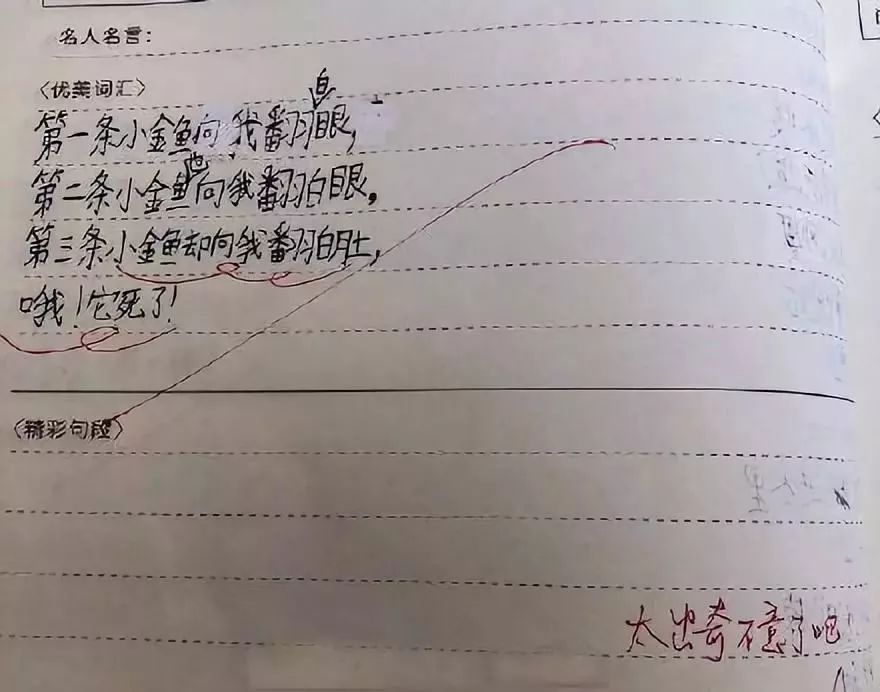 名人名言:
〈优美词汇〉
第一条小金鱼向我翻白眼,
第二条小金鱼也向我翻白眼,
第三条小金鱼却向我翻白肚,
哦!它死了!
〈精彩句段〉
太出奇不意了吧